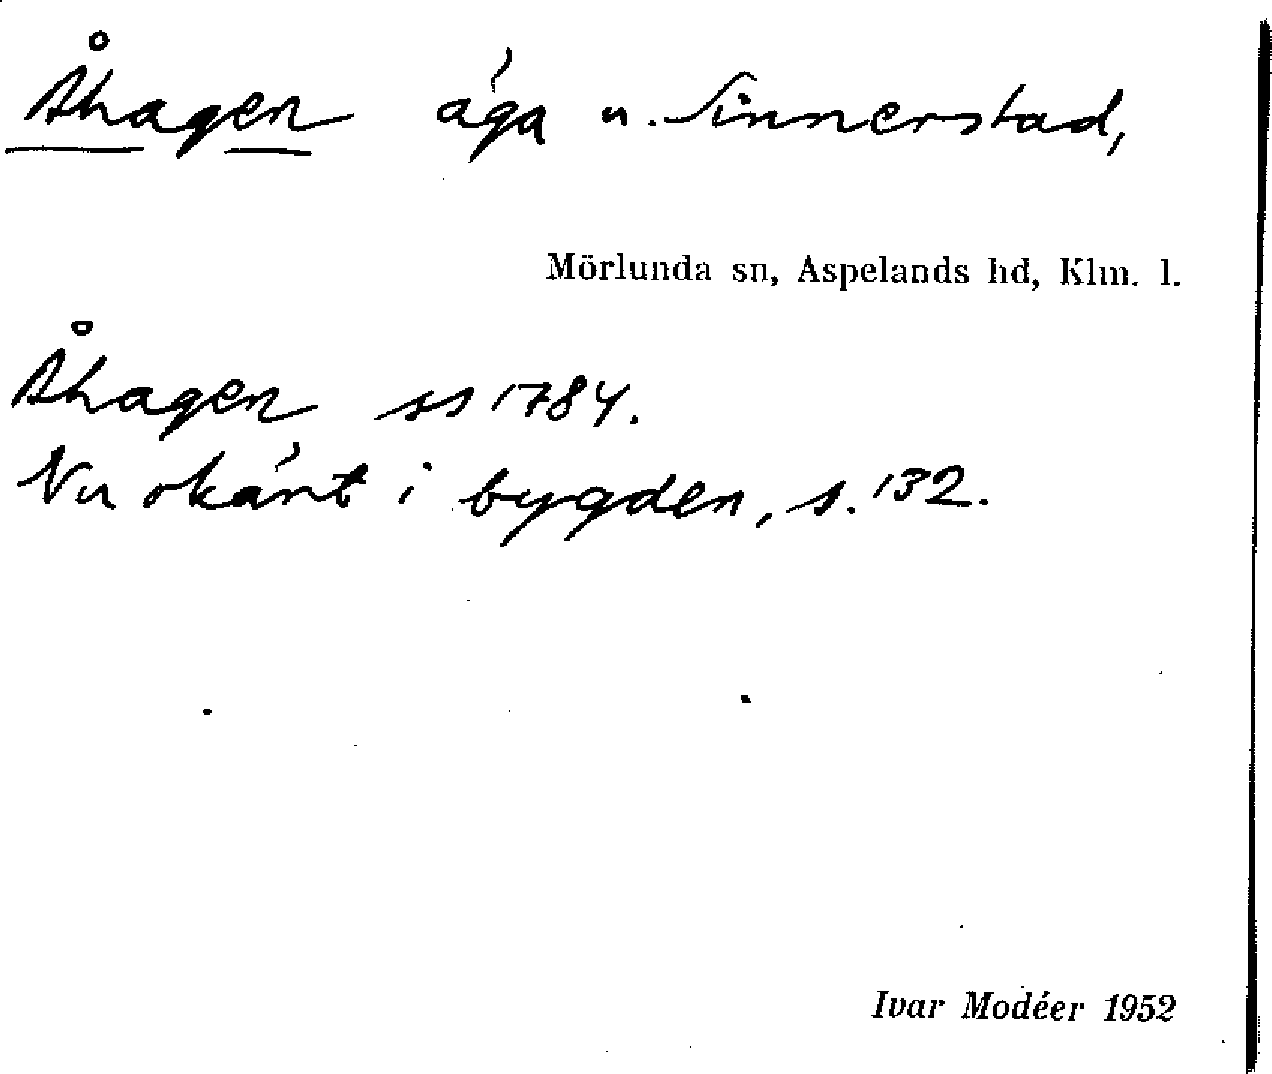 Åhagen äga u. Sinnerstad,
Mörlunda sn, Aspelands hd, Klm. l.
Åhagen ss 1784.
Nu okänt i bygden, s. 132.
Ivar Modéer 1952